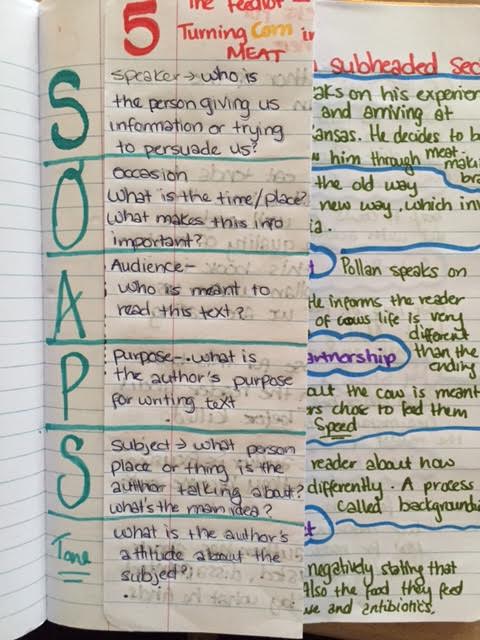 5
The Feedlot
Turning Corn in
MEAT
S
speaker → who is
the person giving us
information or trying
to persuade us?
O
Occasion
What is the time/place?
What makes this info
important?
A
Audience-
who is meant to
read this text?
P
purpose-. what is
the author's purpose
for writing text
S
Subject → what person
place or thing is the
author talking about?
what's the main idea?
Tone
what is the author's
attitude about the
subject?
subheaded sec
aks on his experien
and arriving at
ansas. He decides to b
him through meat.
making
the old way
new way, which inv
ia.
Pollan speaks on
He informs the reader
of cows life is very
different
than the
ending
artnership
out the cow is meant
rs chose to feed them
Speed
reader about how
differently. A process
called backgroundi
negatively stating that
Also the food they feed
use and antibiotics.